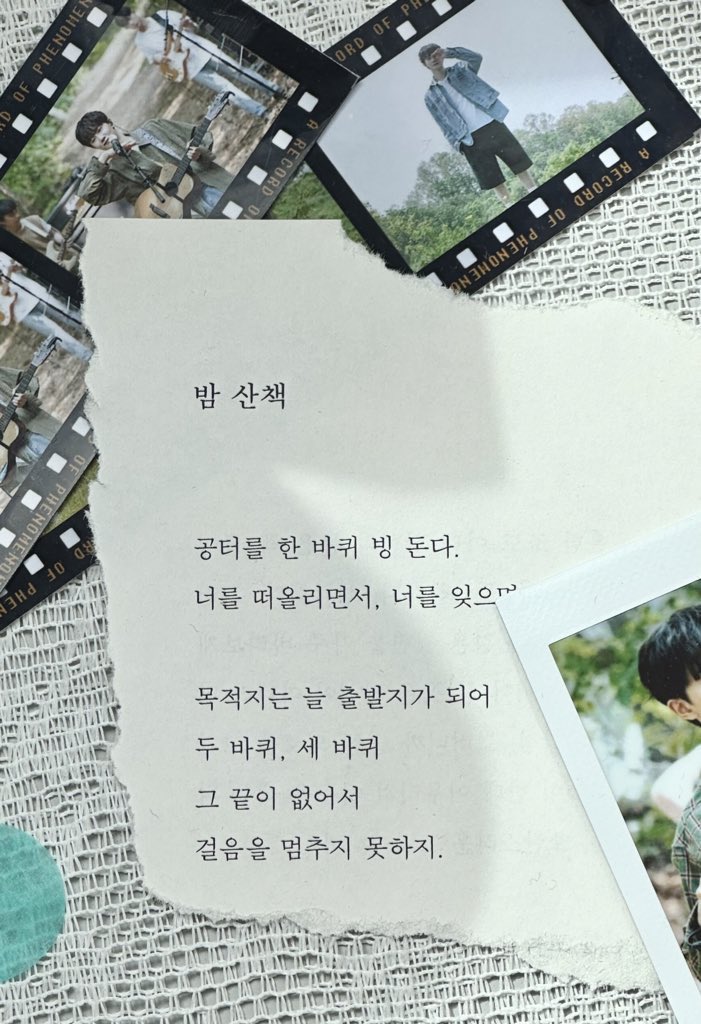 ORD OF PHENOMEN
A RECORD O
ORD OF PHENOMEN
A RECORD OF PHENOMENO
OF PHENOM
밤 산책
공터를 한 바퀴 빙 돈다.
너를 떠올리면서, 너를
목적지는 늘 출발지가 되어
두 바퀴, 세 바퀴
그 끝이 없어서
걸음을 멈추지 못하지.